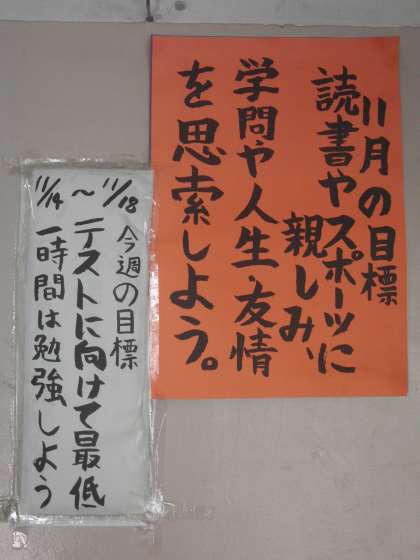 11月の目標
読書やスポーツに
親しみ、
学問や人生・友情
を思索しよう。
11/14〜11/18
今週の目標
テストに向けて最低
一時間は勉強しよう